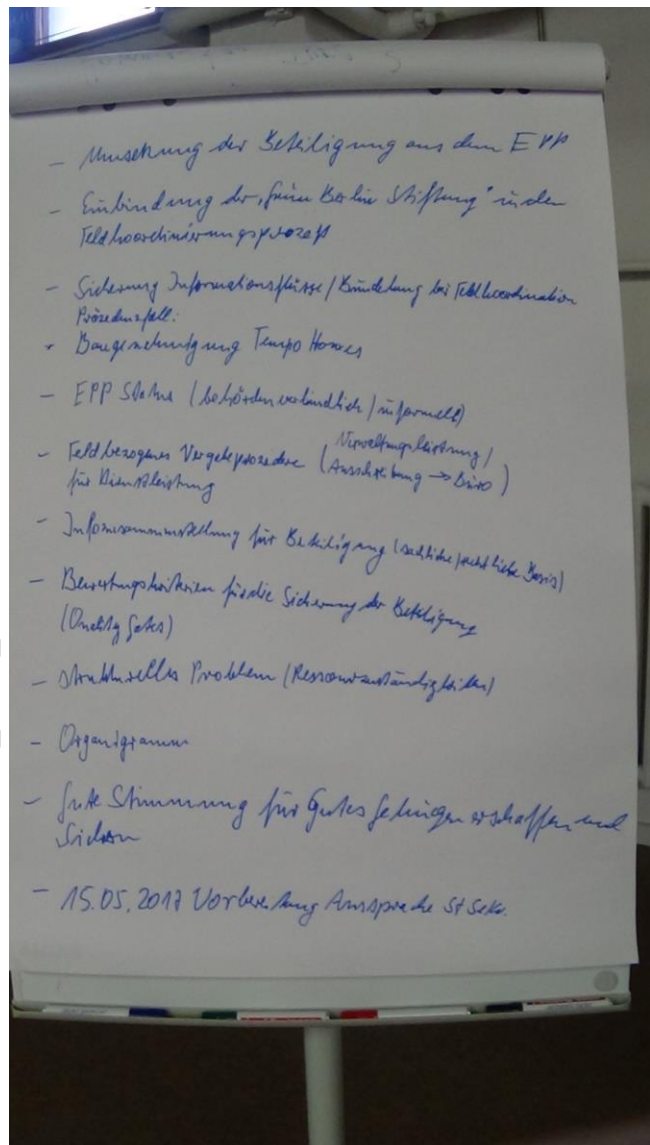 - Umsetzung der Beteiligung aus dem EPP
- Einbindung der „Grün Berlin Stiftung" in den
Feldkoordinierungsprozeß
- Sicherung Informationsflüsse / Bündelung bei Feldkoordination
Präzedenzfall:
Baugenehmigung Tempo Homes
- EPP Status (behördenverbindlich / informell)
- Feldbezogenes Vergabeprozedere (Verwaltungsleistung /
für Dienstleistung Ausschreibung → Büro)
- Infozusammenstellung für Beteiligung (sachliche / rechtliche Basis)
- Bewertungskriterien für die Sicherung der Beteiligung
(Quality Gates)
- Strukturelles Problem (Ressortzuständigkeiten)
- Organigramm
- Gute Stimmung für Gutes Gelingen erschaffen und
Sichern
- 15.05.2017 Vorbereitung Aussprache StSekr.